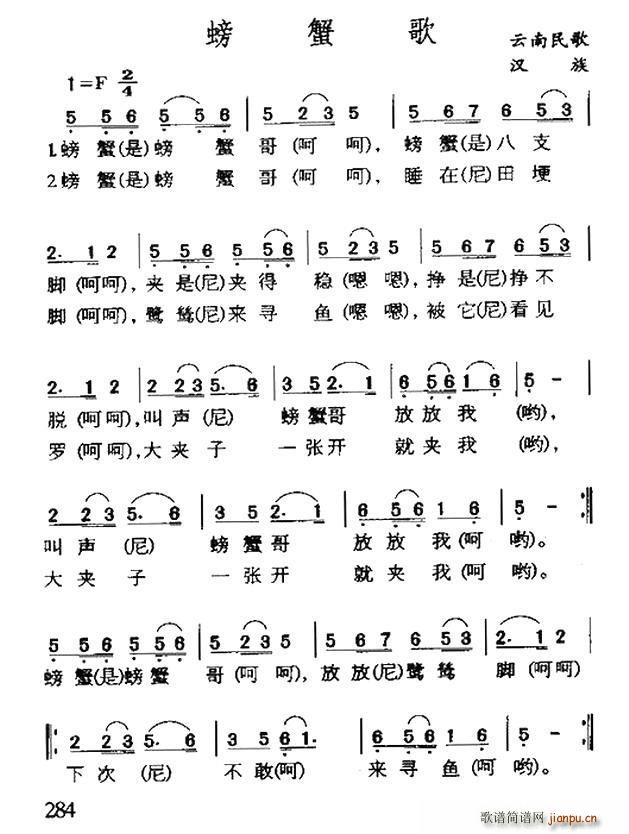 螃蟹歌
云南民歌
汉族
1=F 2/4
5 5 6 5 5 6 | 5 2 3 5 | 5 6 7 6 5 3 |
1.螃蟹(是)螃蟹哥(呵呵),螃蟹(是)八支
2.螃蟹(是)螃蟹哥(呵呵),睡在(尼)田埂
2. 1 2 | 5 5 6 5 5 6 | 5 2 3 5 | 5 6 7 6 5 3 |
脚(呵呵),夹是(尼)夹得稳(嗯嗯),挣是(尼)挣不
脚(呵呵),鹭鸶(尼)来寻鱼(嗯嗯),被它(尼)看见
2. 1 2 | 2 2 3 5. 6 | 3 5 2. 1 | 6 5 6 1 6 | 5 - |
脱(呵呵),叫声(尼)螃蟹哥放放我(哟),
罗(呵呵),大夹子一张开就夹我(哟),
2 2 3 5. 6 | 3 5 2. 1 | 6 5 6 1 6 | 5 - :||
叫声(尼)螃蟹哥放放我(呵哟)。
大夹子一张开就夹我(呵哟)。
5 5 6 5 5 6 | 5 2 3 5 | 5 5 6 7 6 5 3 | 2. 1 2 |
螃蟹(是)螃蟹哥(呵呵),放放(尼)鹭鸶脚(呵呵)
||: 2 2 3 5. 6 | 3 5 6 1 | 6 5 6 1 6 | 5 - :||
下次(尼)不敢(呵)来寻鱼(呵哟)。
284
歌谱简谱网
jianpu.cn